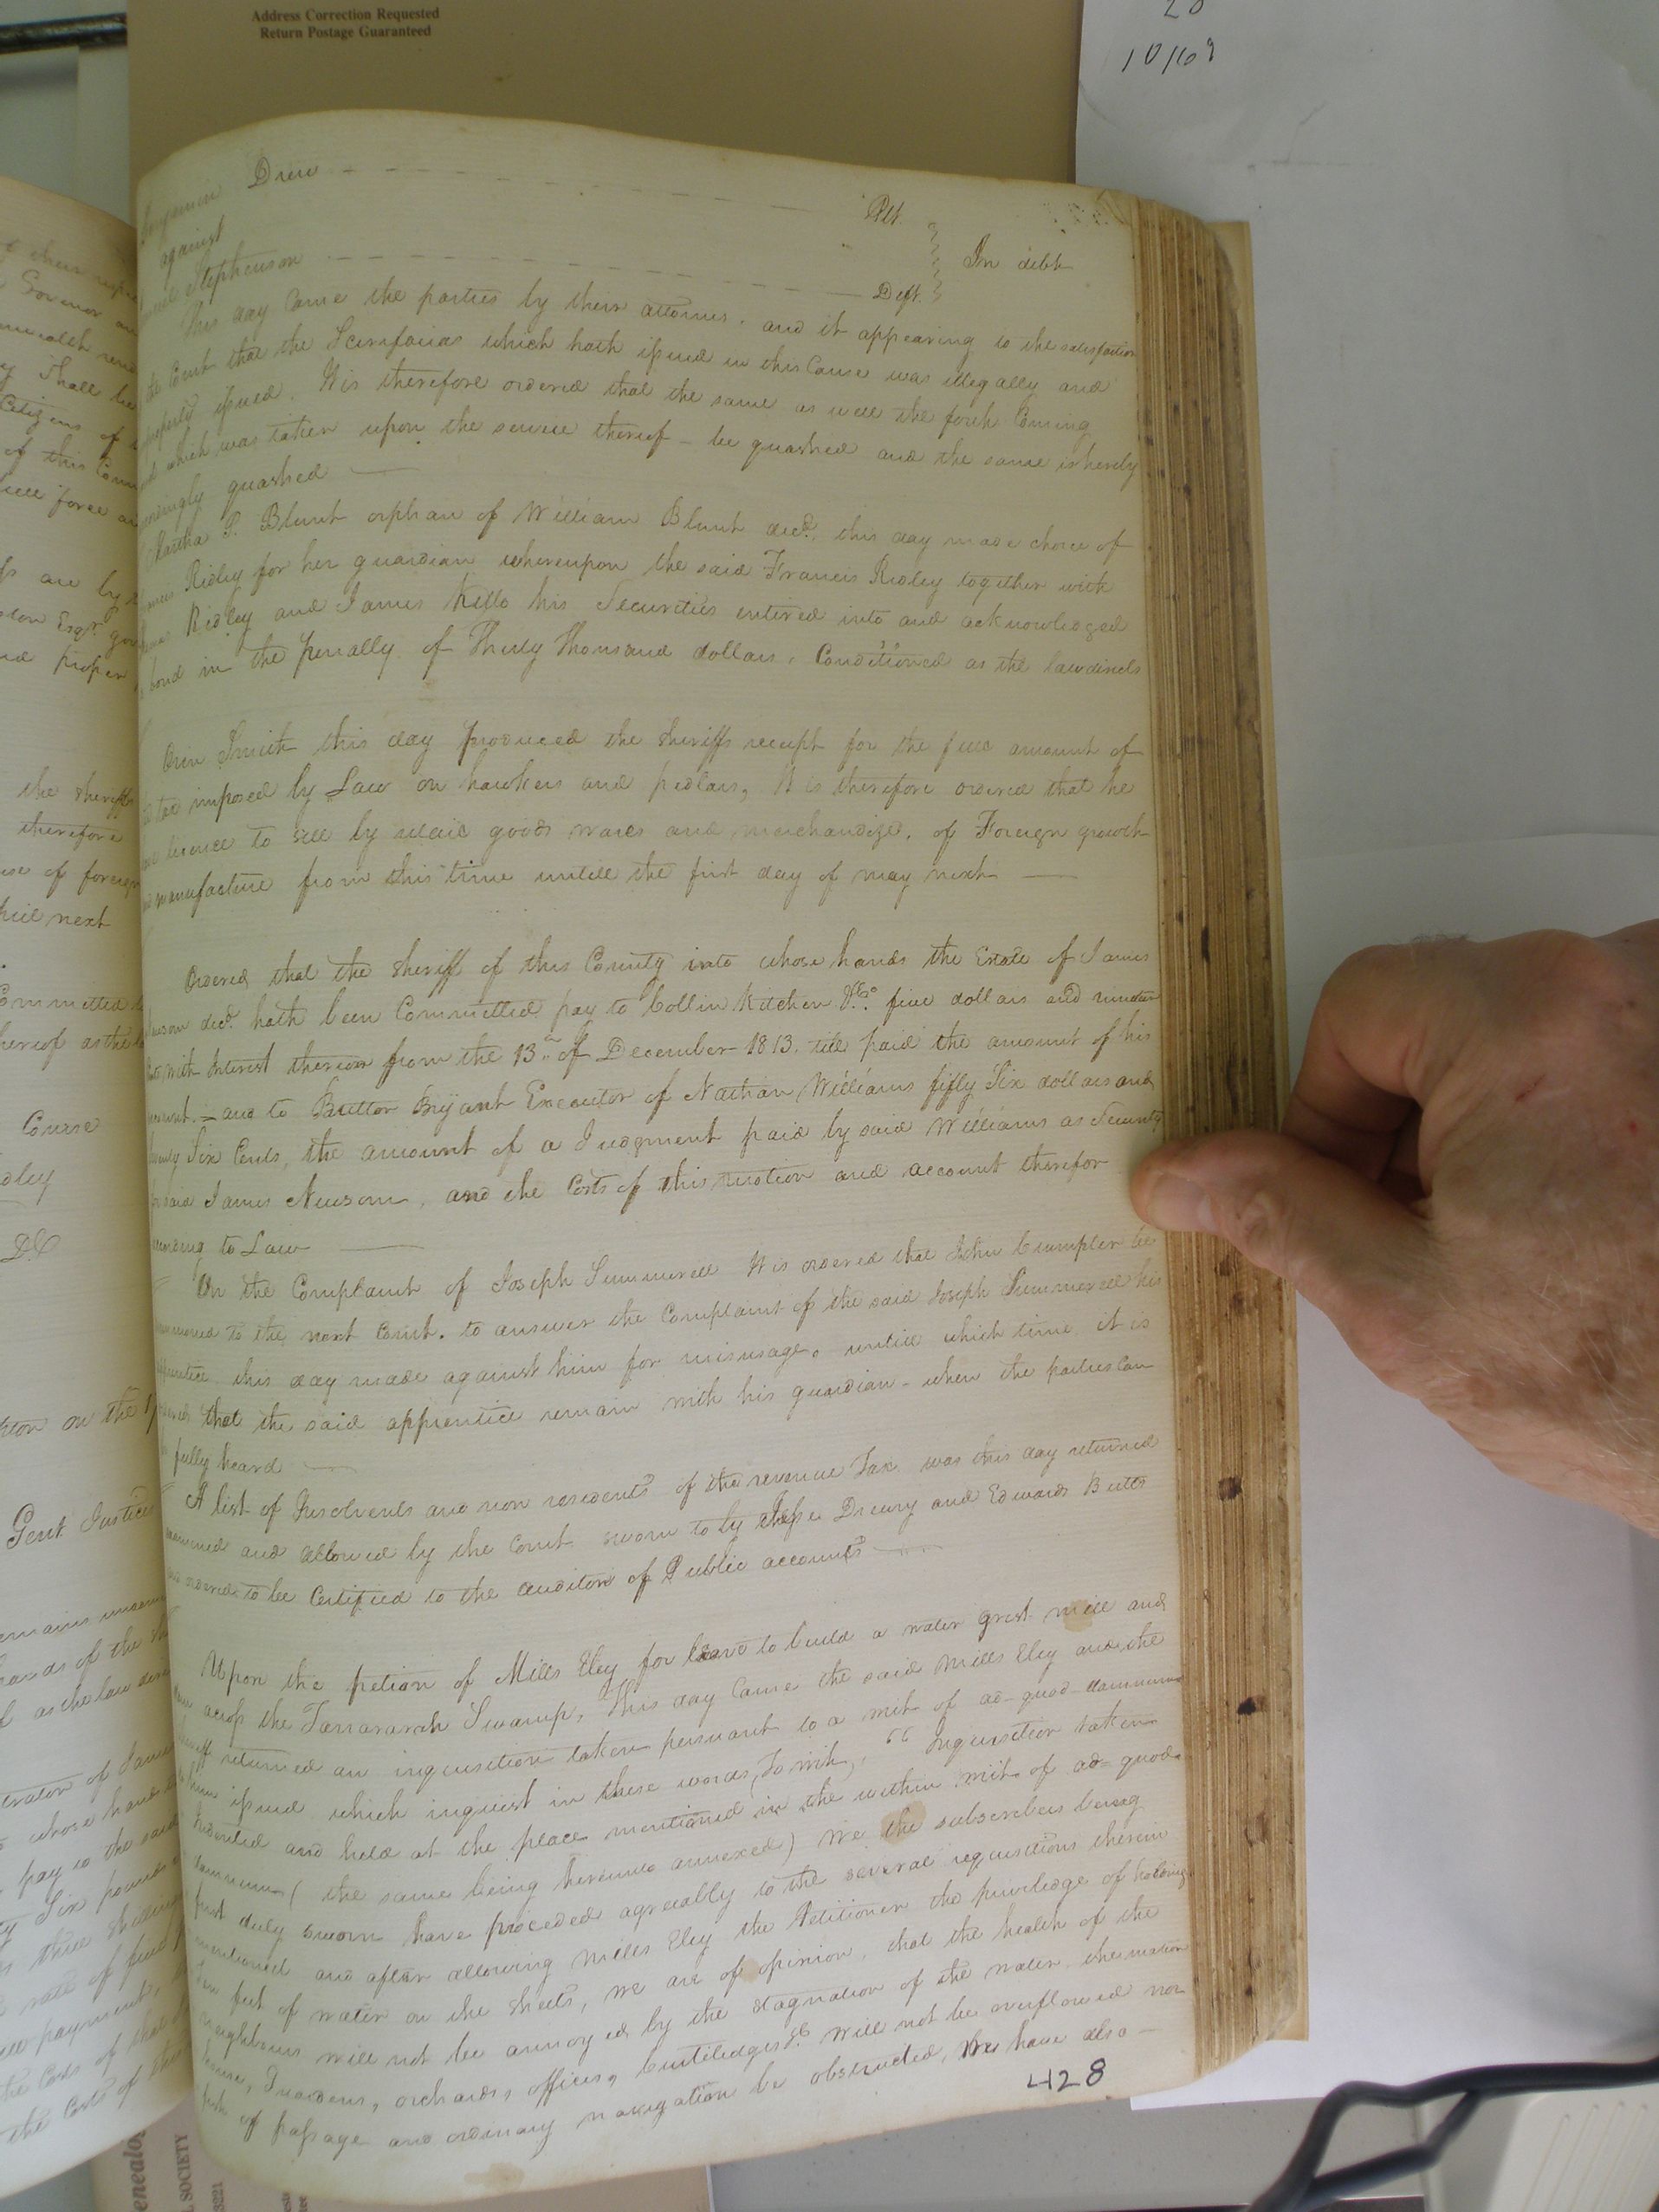 Address Correction Requested
Return Postage Guaranteed
20
10/169
Drew — Plt.
against
In debt
Stephenson — Deft.
This day Came the parties by their attornies. and it appearing to the satisfaction
the Court that the Scirifacias which hath issued in this Cause was illegally and
issued. It is therefore ordered that the same as well the forth Coming
which was taken upon the service thereof — be quashed and the same is hereby
quashed —
Martha P. Blunt orphan of William Blunt decd. this day made choice of
Francis Ridley for her guardian whereupon the said Francis Ridley together with
Ridley and James Kello his Securities entired into and acknowledged
bond in the penally of Thirty Thousand dollars, Conditioned as the law directs
Orin Smith this day produced the sheriffs receipt for the full amount of
tax imposed by Law on hawkers and pedlars, It is therefore ordered that he
licence to sell by retail goods wares and merchandize, of Foreign growth
manufacture from this time untill the first day of may next —
Ordered that the sheriff of this County into whose hands the Estate of James
Newsom decd. hath been Committed pay to Collin Kitchen &Co. five dollars and nineteen
with Interest thereon from the 13th of December 1813. till paid the amount of his
— and to Britton Bryant Executor of Nathan Williams fifty Six dollars and
Six Cents, the amount of a Judgment paid by said Williams as Security
for said James Newsom, and the Costs of this motion and account therefor
according to Law —
On the Complaint of Joseph Summerell It is ordered that John Crumpler be
summoned to the next Court. to answer the Complaint of the said Joseph Summerell his
apprentice this day made against him for misusage, untill which time it is
ordered that the said apprentice remain with his guardian — when the parties Can
be fully heard —
A list of Insolvents and non residents of the revenue Tax was this day returned
examined and allowed by the Court sworn to by Jesse Drewry and Edwards Butts
and ordered to be Certified to the auditor of Public accounts —
Upon the petion of Mills Eley for leave to build a water grist mill and
dam across the Tarrararah Swamp, This day Came the said Mills Eley and the
sheriff returned an inquisition taken pursuant to a writ of ad-quod-damnum
issued which inquest in these words, To wit, "Inquisition taken
indented and held at the place mentioned in the within writ of ad-quod-
damnum (the same being hereunto annexed) We the subscribers being
first duly sworn have proceded agreeally to the several requisitions therein
mentioned and after allowing Mills Eley the Petitioner the priviledge of holding
feet of water on the sheets, we are of opinion, that the health of the
neighbours will not be annoyed by the stagnation of the water, the mation
house, Guardens, orchards, offices, Curtiledges &c. will not be overflowed nor
fish of passage and ordinary navigation be obstructed, We have also —
428
their
Govenor
shall be
Citizens of
of this Com
full force
are by
Esqr.
proper
the sheriff
therefore
of foreign
next
Committed
hereof as the
Course
Ridley
D.C
on the
Gent Justices
remains
hands of the
as the law
of James
whose hands
pay to the said
Six pounds
three shillings
rate of
payment,
the Costs of that
the Costs of this
SOCIETY